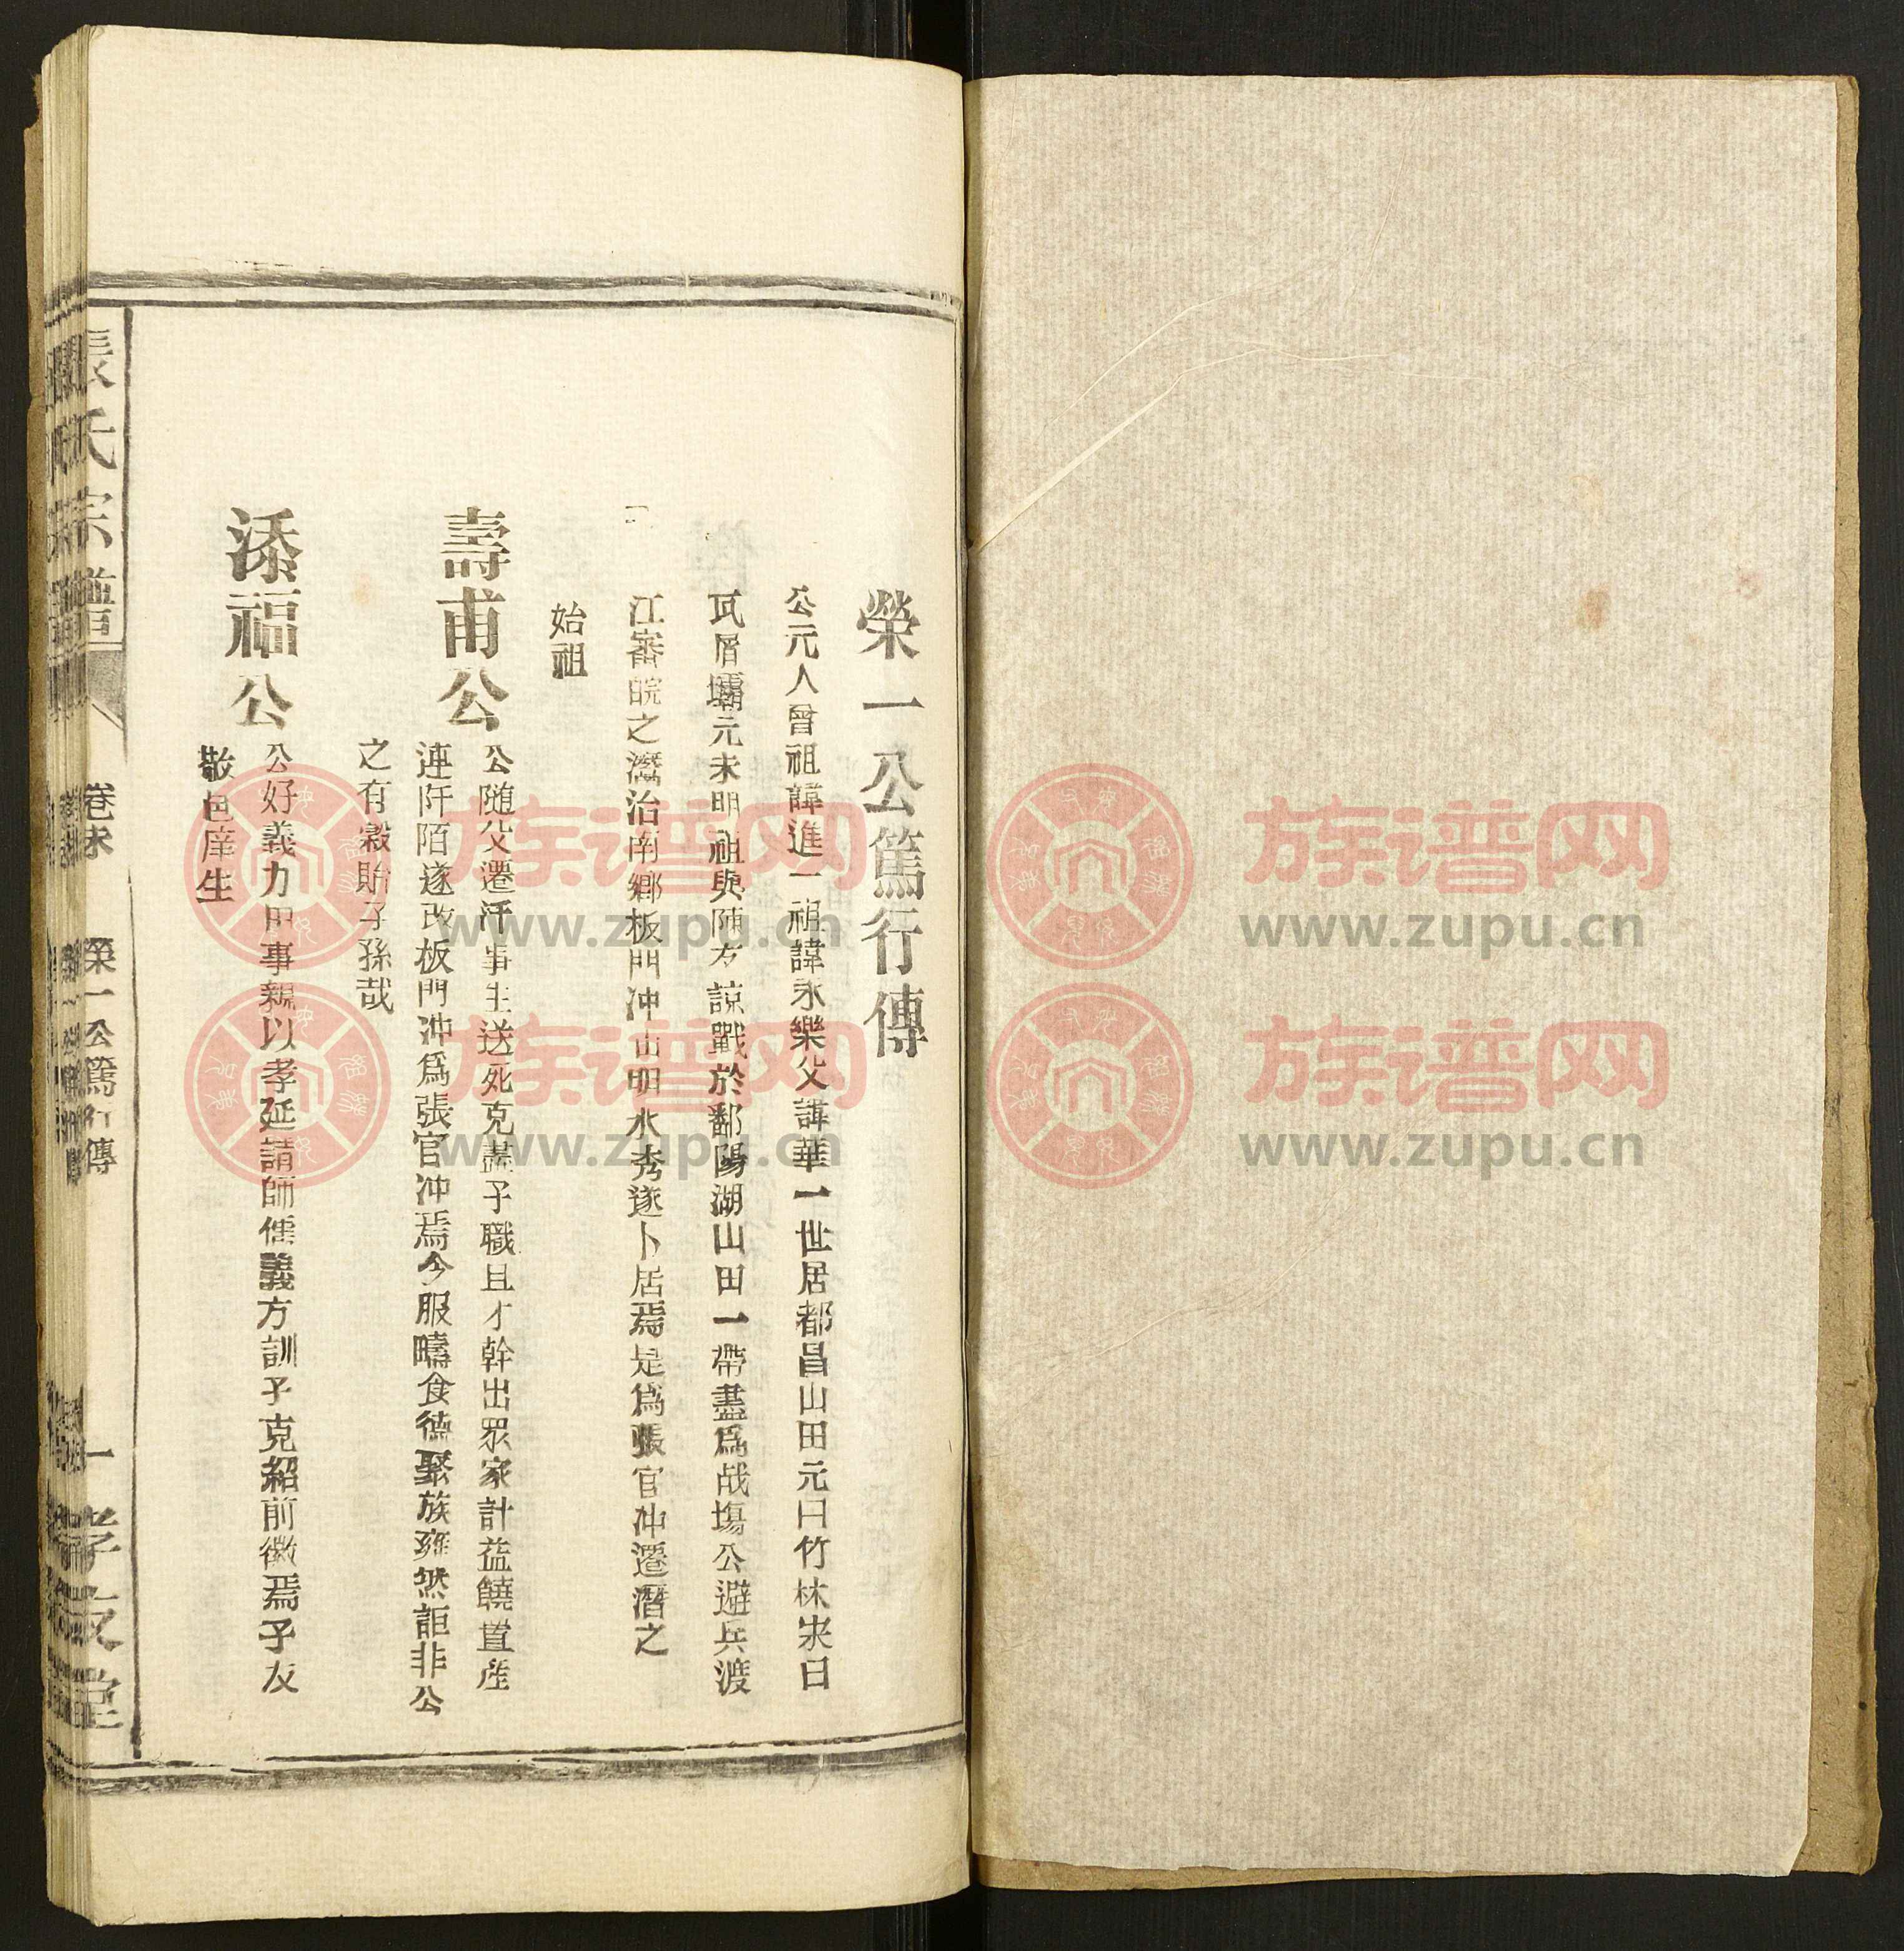 榮一公篤行傳
公元人曾祖諱進一祖諱永樂父諱華一世居都昌山田元曰竹林宋曰
瓦屑壩元末明祖與陳友諒戰於鄱陽湖山田一帶盡爲战塲公避兵渡
江審皖之潛治南鄉板門冲山明水秀遂卜居焉是爲張官冲遷潛之
始祖
壽甫公
公随父遷汗事生送死克盡子職且才幹出眾家計益饒置產
連阡陌遂改板門冲爲張官冲焉今服疇食德聚族雍然詎非公
之有穀貽子孫哉
添福公
公好義力田事親以孝延請師儒義方訓子克紹前徽焉子友
敬邑庠生
張氏宗譜
卷末
榮一公篤行傳
一
孝友堂
族谱网
www.zupu.cn
族谱网
www.zupu.cn
族谱网
www.zupu.cn
族谱网
www.zupu.cn